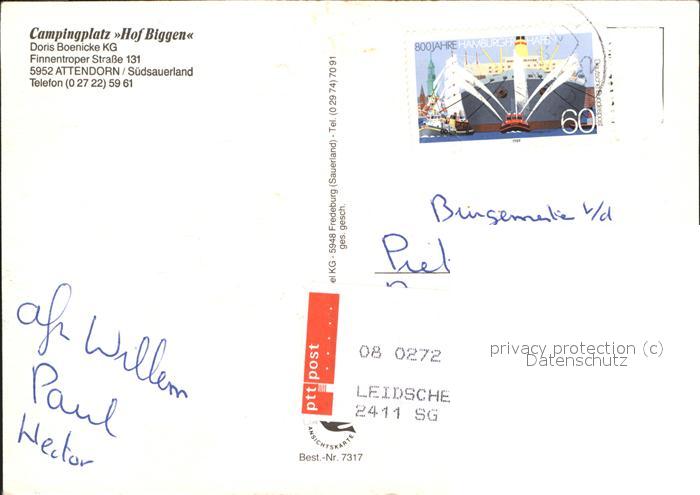 Campingplatz »Hof Biggen«
Doris Boenicke KG
Finnentroper Straße 131
5952 ATTENDORN / Südsauerland
Telefon (0 27 22) 59 61
800 JAHRE HAMBURGER HAFEN
60
1989
el KG - 5948 Fredeburg (Sauerland) - Tel. (0 29 74) 70 91
ges. gesch.
v/d
afz Willem
Paul
Hector
ptt post
08 0272
LEIDSCHE
2411 SG
privacy protection (c)
Datenschutz
ANSICHTSKARTE
Best.-Nr. 7317